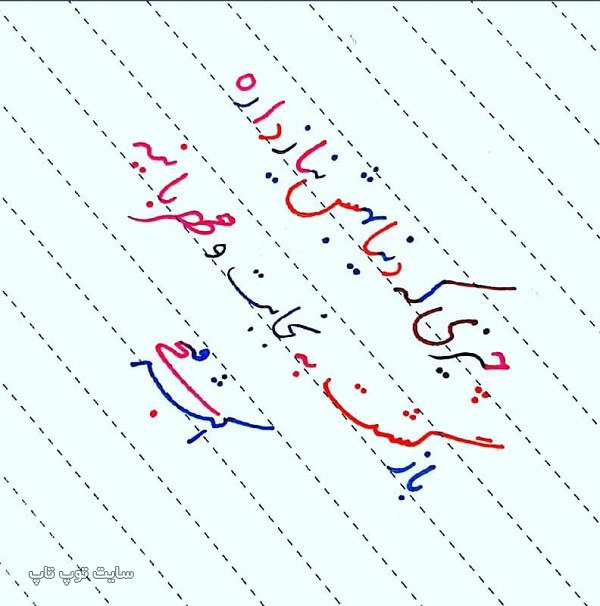 چیزی که دنیا بهش نیاز داره
بازگشت به نجابت و مهربانیه
سایت توپ تاپ